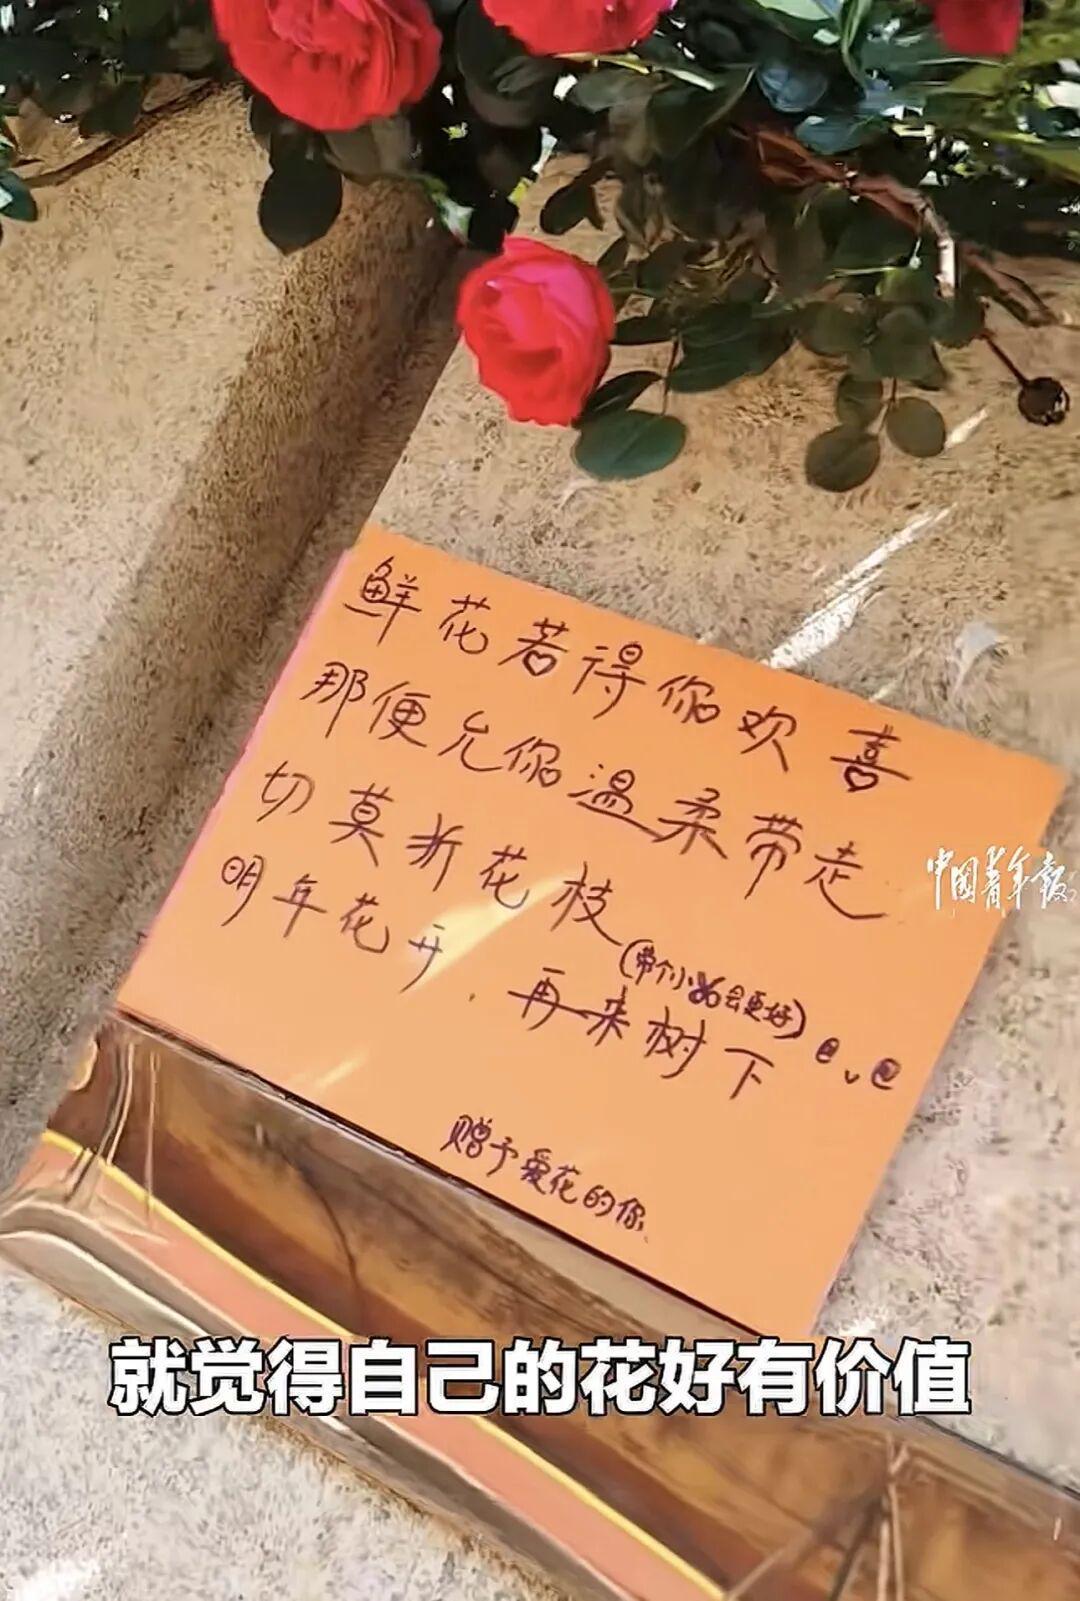 鲜花若得你欢喜
那便允你温柔带走
切莫折花枝
(带个小剪会更好)
明年花开.再来树下
赠予爱花的你
中国青年报
就觉得自己的花好有价值